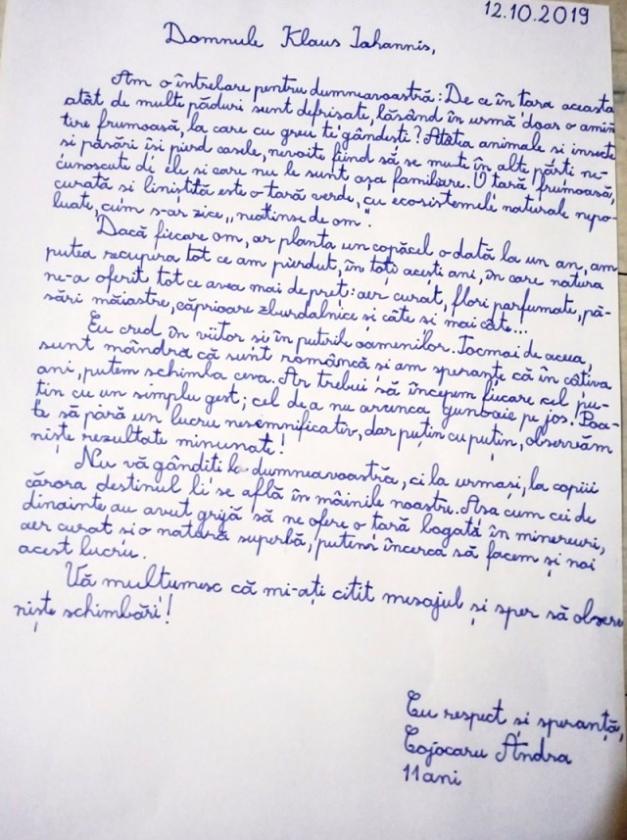 12.10.2019
Domnule Klaus Iohannis,
Am o întrebare pentru dumneavoastră: De ce în țara aceasta
atât de multe păduri sunt defrișate, lăsând în urmă doar o amin
tire frumoasă, la care cu greu te gândești? Atâtea animale si insecte
si păsări își pierd casele, nevoite fiind să se mute în alte părți ne-
cunoscute de ele si care nu le sunt așa familiare. O țară frumoasă,
curată si liniștită este o țară verde, cu ecosistemele naturale nepo-
luate, cum s-ar zice „neatinse de om".
Dacă fiecare om, ar planta un copăcel o dată la un an, am
putea recupera tot ce am pierdut, în toți acești ani, în care natura
ne-a oferit tot ce avea mai de preț: aer curat, flori parfumate, pă-
sări măiastre, căprioare zburdalnice și câte si mai cât...
Eu cred în viitor si în puterile oamenilor. Tocmai de aceea,
sunt mândră că sunt româncă și am speranțe că în câțiva
ani, putem schimba ceva. Ar trebui să începem fiecare cel pu-
țin cu un simplu gest; cel de a nu arunca gunoaie pe jos. Poa-
te să pară un lucru nesemnificativ, dar puțin cu puțin, observăm
niște rezultate minunate!
Nu vă gândiți la dumneavoastră, ci la urmași, la copiii
cărora destinul li se află în mâinile noastre. Asa cum cei de
dinainte au avut grijă să ne ofere o țară bogată în minereuri,
aer curat si o natură superbă, putem încerca să facem și noi
acest lucru.
Vă multumesc că mi-ați citit mesajul și sper să obser
niște schimbări!
Cu respect și speranță,
Cojocaru Andra
11 ani